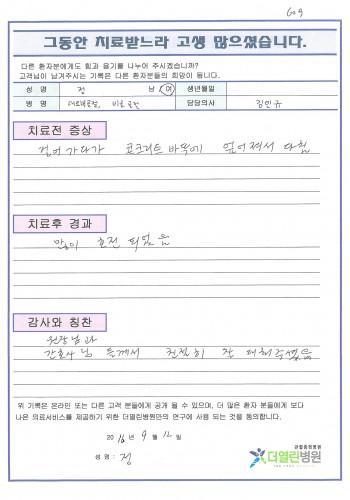 609
그동안 치료받느라 고생 많으셨습니다.
다른 환자분에게도 힘과 용기를 나누어 주시겠습니까?
고객님이 남겨주시는 기록은 다른 환자분들의 희망이 됩니다.
성 명 전 남 여 생년월일
병 명 대퇴골절, 비골 골절 담당의사 김민규
치료전 증상
걸어가다가 코크리트 바닥에 엎어져서 다침
치료후 경과
많이 호전 되었음
감사와 칭찬
원장님과
간호사님 들께서 친절히 잘 대해주셨음
위 기록은 온라인 또는 다른 고객 분들에게 공개 될 수 있으며, 더 많은 환자 분들에게 보다
나은 의료서비스를 제공하기 위한 더열린병원만의 연구에 사용 되는 것을 동의합니다.
2016 년 9 월 12 일
성 명 : 정
관절중점병원
더열린병원